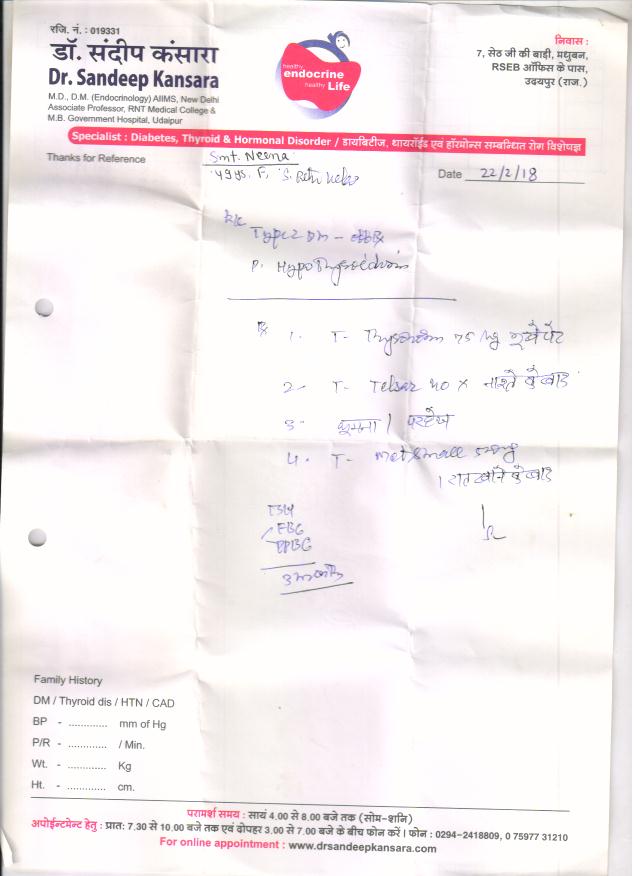 रजि. नं. : 019331
डॉ. संदीप कंसारा
Dr. Sandeep Kansara
M.D., D.M. (Endocrinology) AIIMS, New Delhi
Associate Professor, RNT Medical College &
M.B. Government Hospital, Udaipur
healthy
endocrine
healthy Life
निवास :
7, सेठ जी की बाड़ी, मधुबन,
RSEB ऑफिस के पास,
उदयपुर (राज.)
Specialist : Diabetes, Thyroid & Hormonal Disorder / डायबिटीज, थायरॉईड एवं हॉरमोन्स सम्बन्धित रोग विशेषज्ञ
Thanks for Reference
Smt. Neena
49 ys. F,
Date 22/2/18
Type 2 DM -
P. Hypothyroidism
Rx 1. T- 75 भूखे पेट
2- T- Telsar 40 x नाश्ते के बाद
3- घूमना / परहेज
4. T- Metsmall
रात खाने के बाद
TSH
FBG
PPBG
3 months
Family History
DM / Thyroid dis / HTN / CAD
BP - ............. mm of Hg
P/R - ............. / Min.
Wt. - ............. Kg
Ht. - ............. cm.
परामर्श समय : सायं 4.00 से 8.00 बजे तक (सोम-शनि)
अपोईन्टमेन्ट हेतु : प्रात: 7.30 से 10.00 बजे तक एवं दोपहर 3.00 से 7.00 बजे के बीच फोन करें । फोन : 0294-2418809, 0 75977 31210
For online appointment : www.drsandeepkansara.com